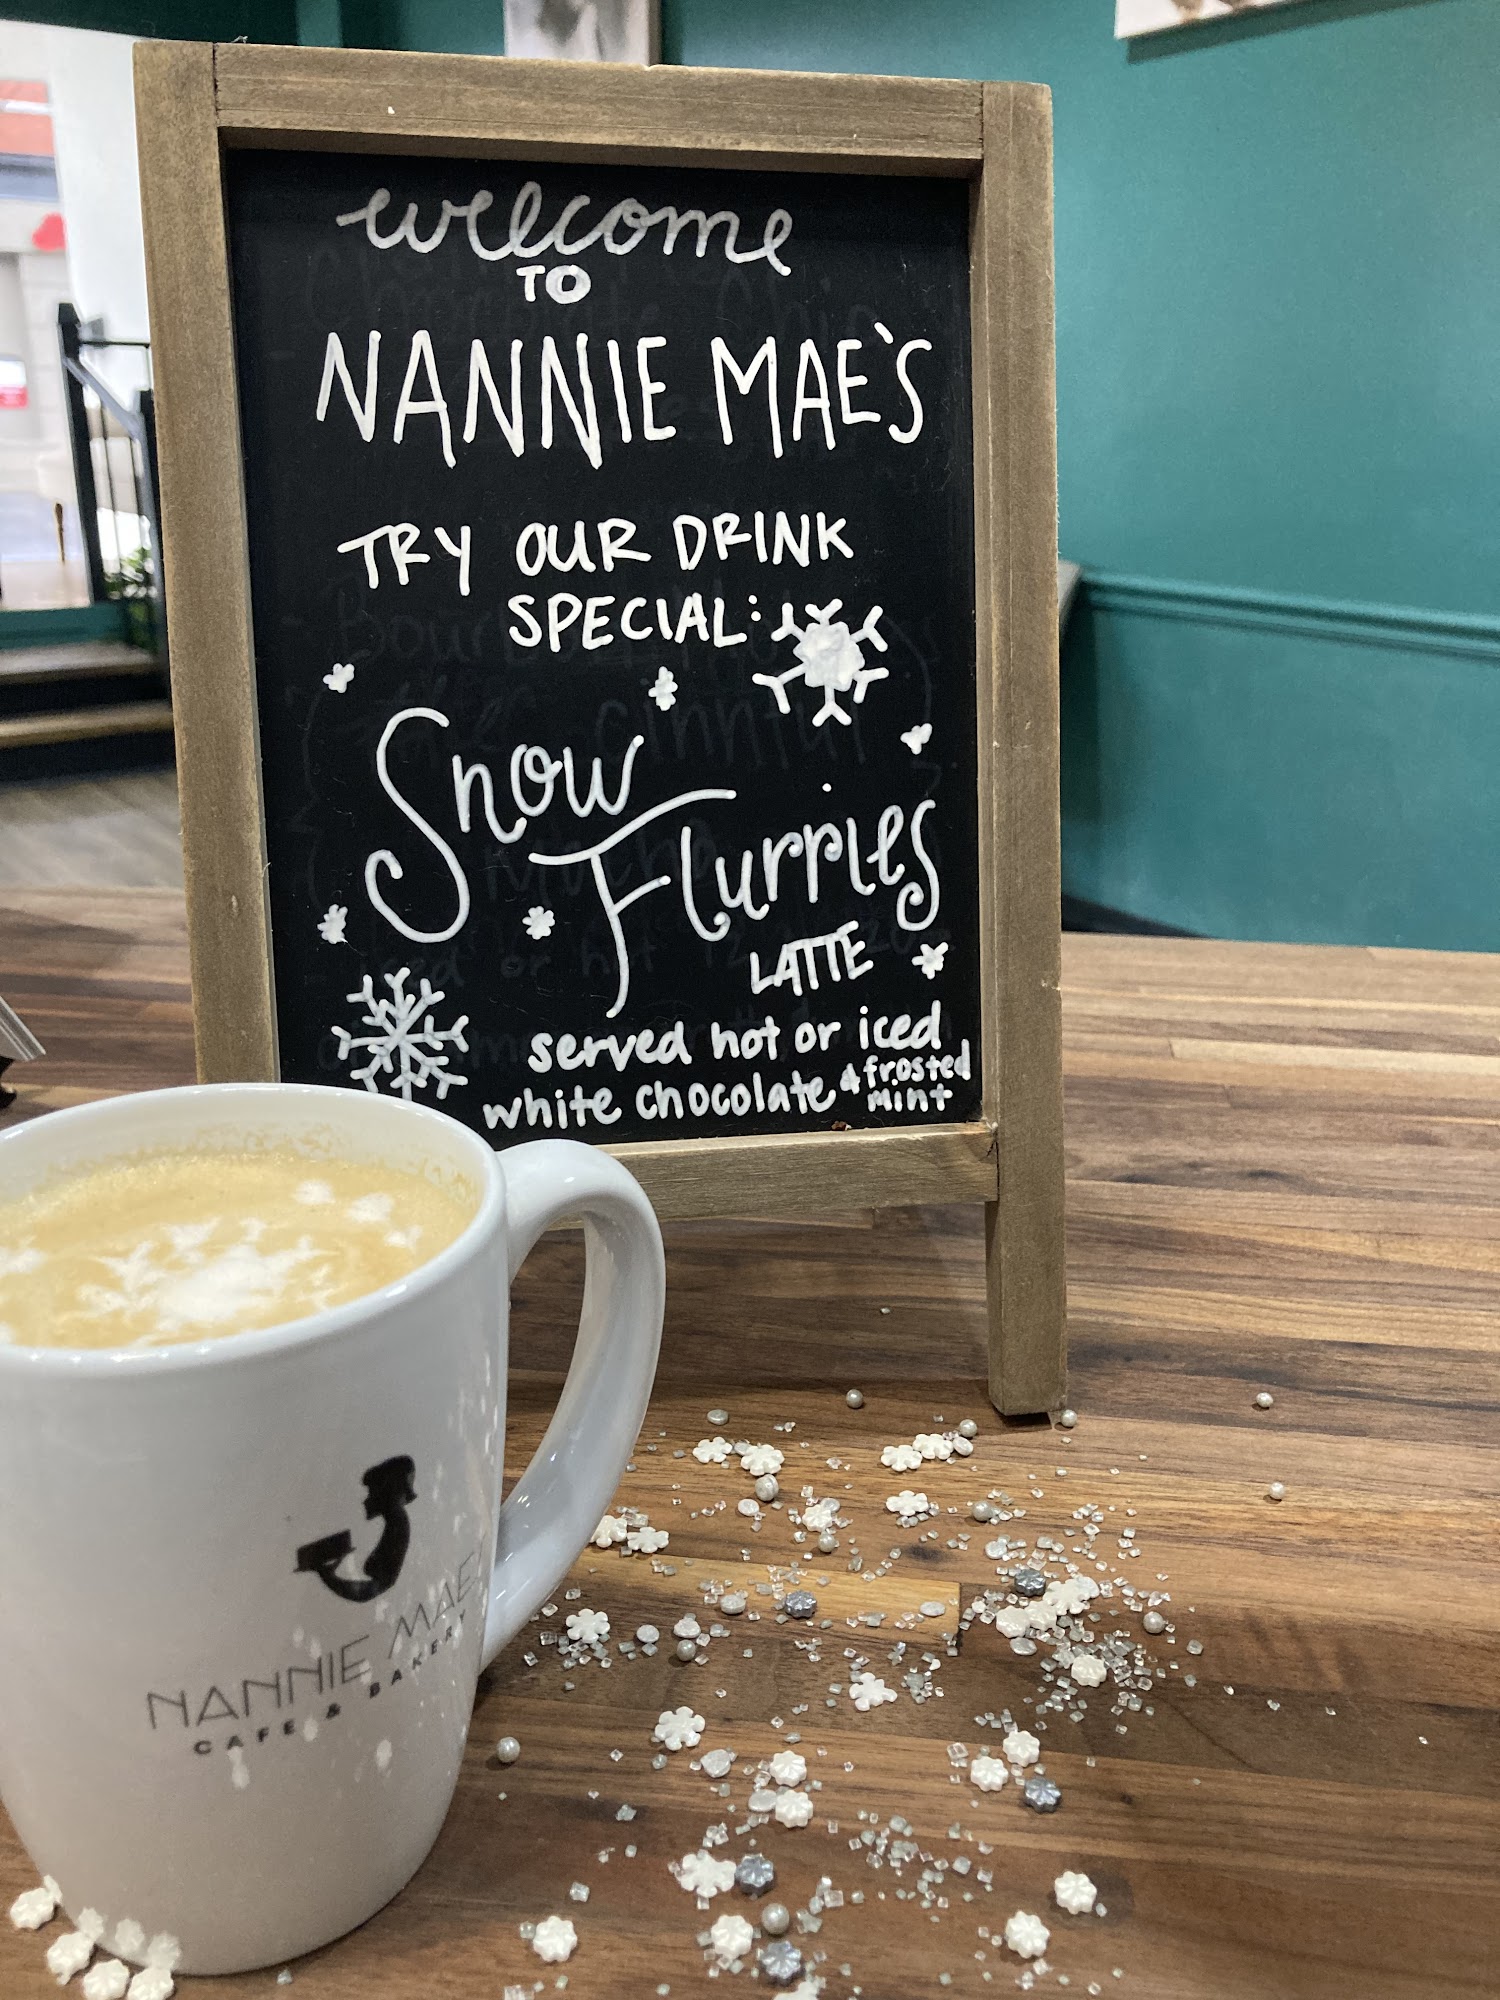 welcome
TO
NANNIE MAE'S
TRY OUR DRINK
SPECIAL:
Snow
Flurries
LATTE
served hot or iced
white chocolate & frosted
mint
NANNIE MAE
CAFE & BAKERY